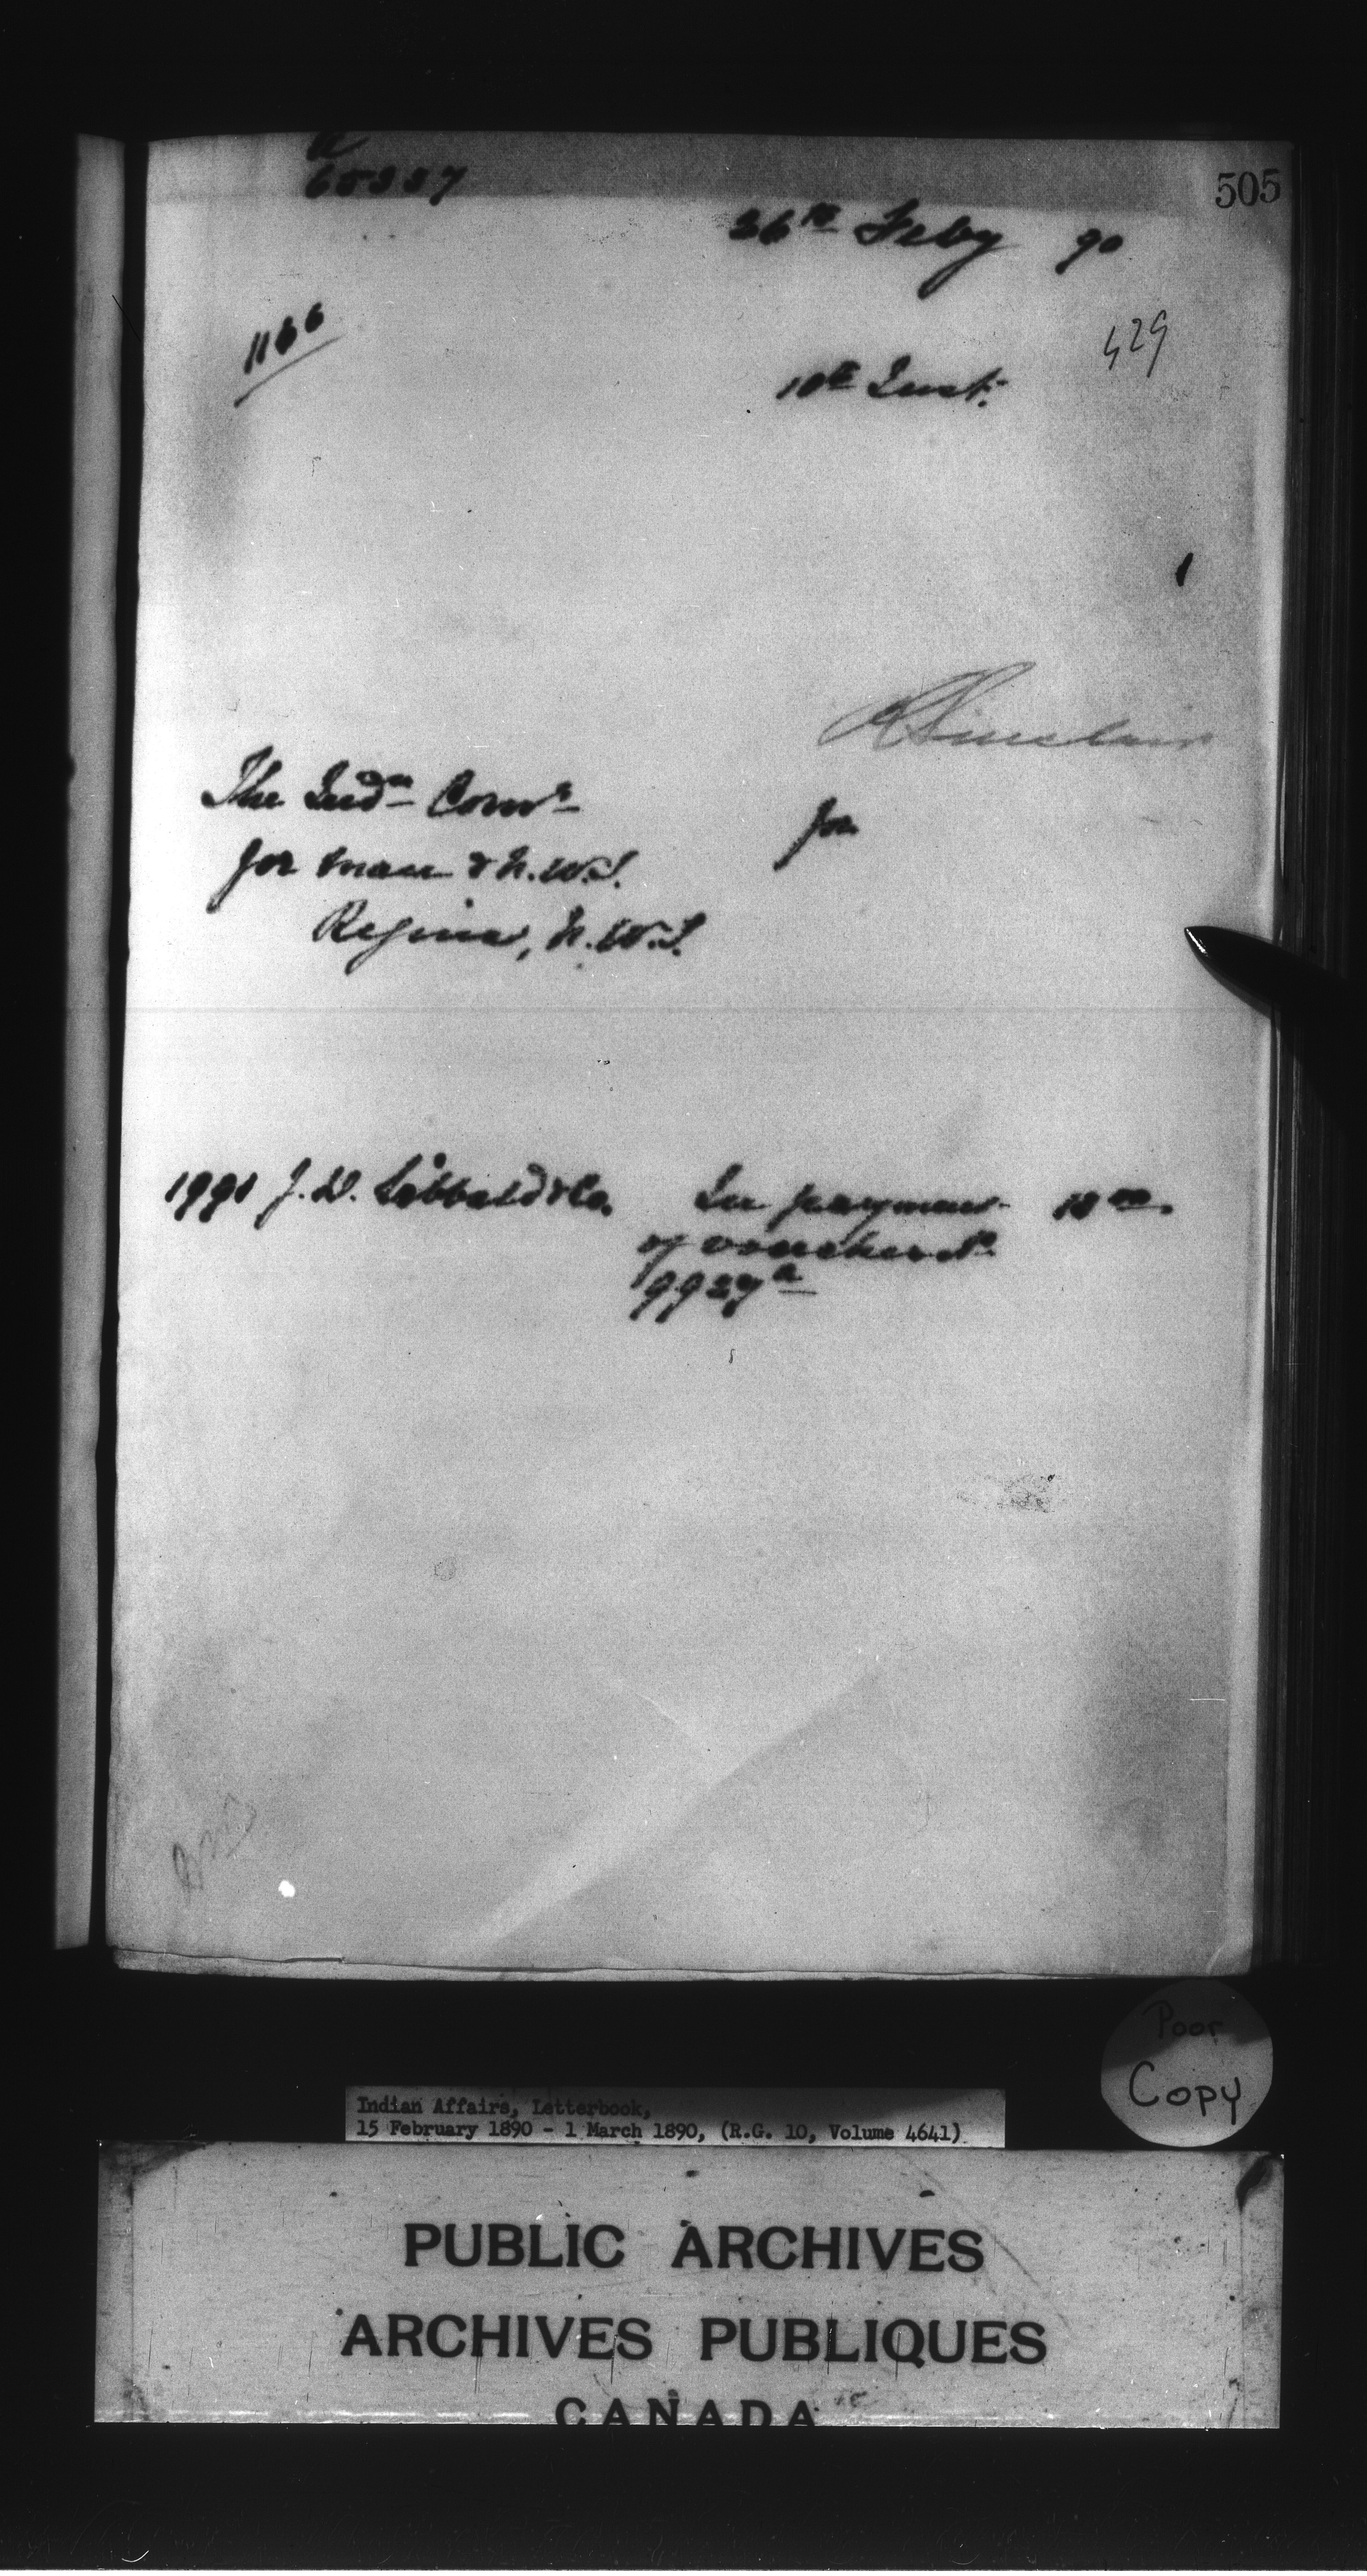 505
26th Feby 90
1166
429
10th Inst.
R Sinclair
The Indn Comr
for
for Man & N.W.T.
Regina, N.W.T.
1991 J. D. Sibbald & Co. In payment
of voucher No
9927a
Poor
Copy
Indian Affairs, Letterbook,
15 February 1890 - 1 March 1890, (R.G. 10, Volume 4641)
PUBLIC ARCHIVES
ARCHIVES PUBLIQUES
CANADA